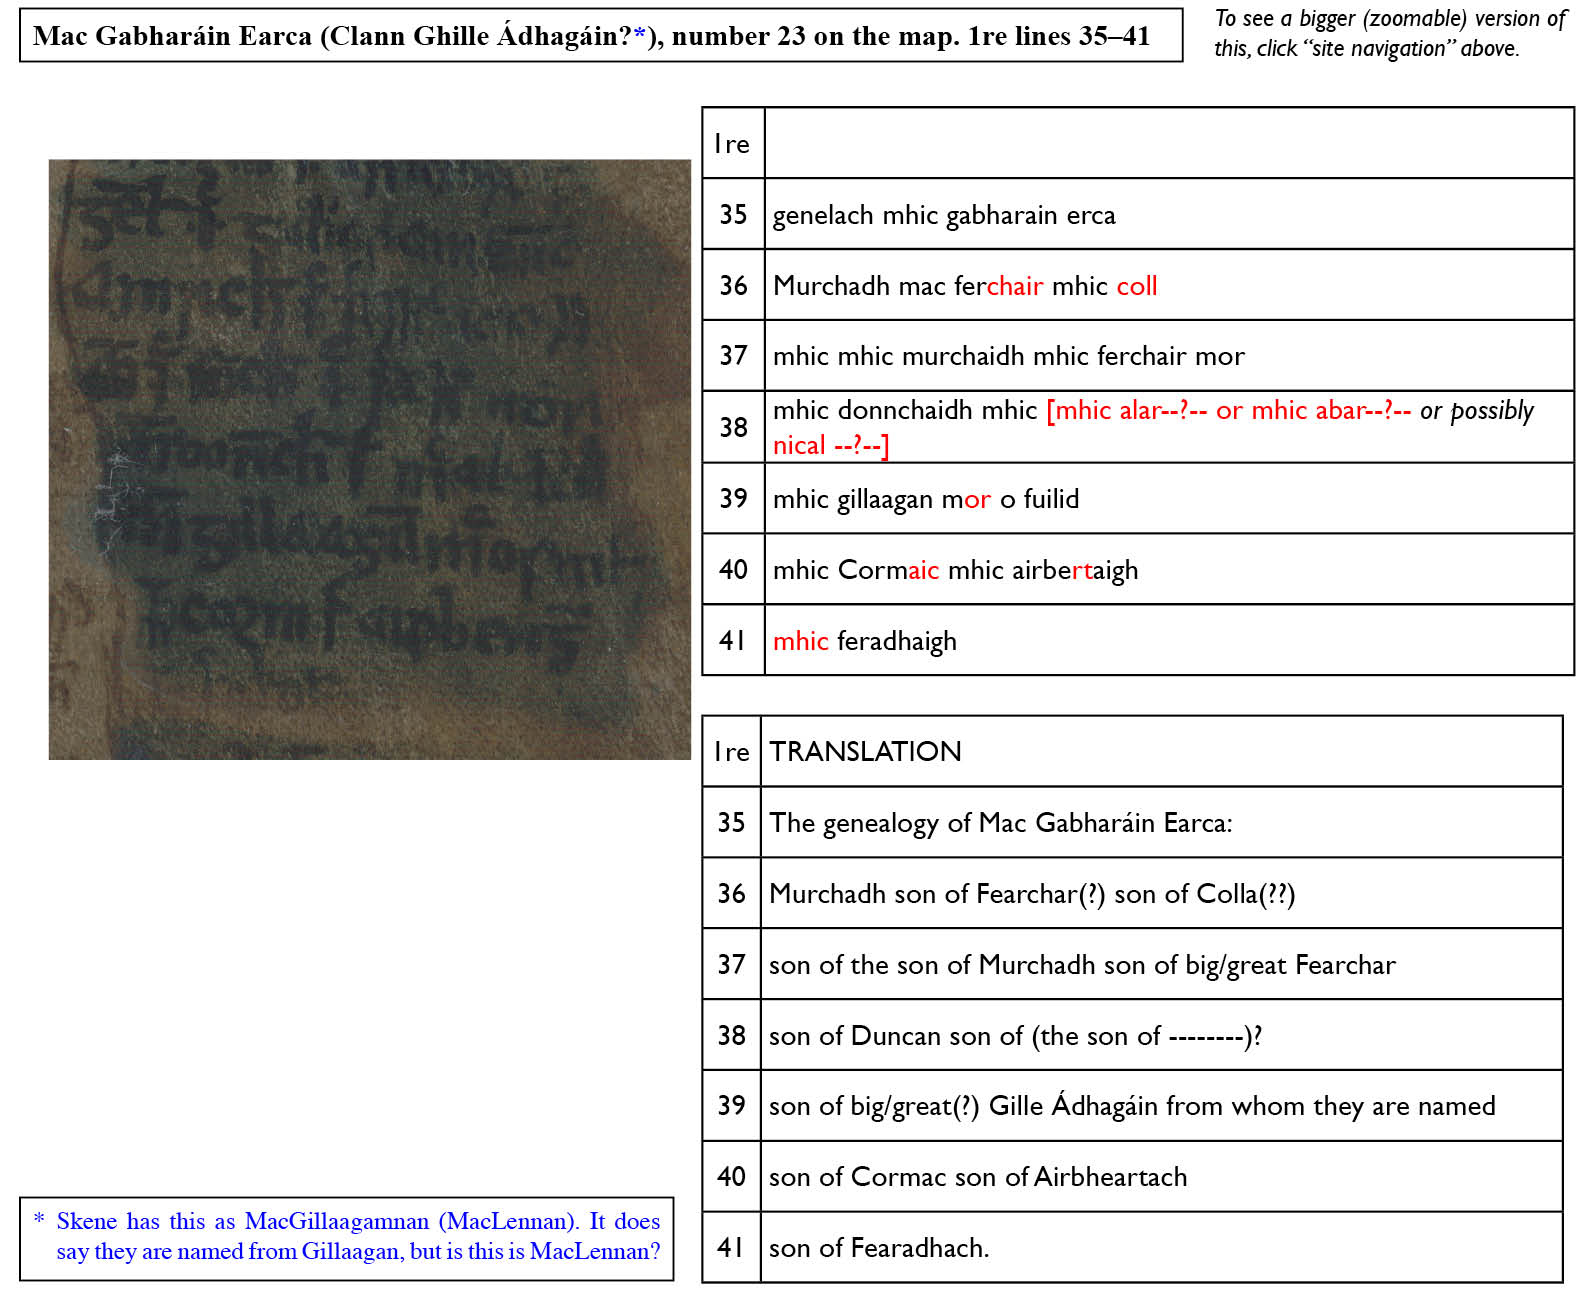 Mac Gabharáin Earca (Clann Ghille Ádhagáin?*), number 23 on the map. 1re lines 35–41
To see a bigger (zoomable) version of
this, click “site navigation” above.
1re
35 genelach mhic gabharain erca
36 Murchadh mac ferchair mhic coll
37 mhic mhic murchaidh mhic ferchair mor
38 mhic donnchaidh mhic [mhic alar--?-- or mhic abar--?-- or possibly
nical --?--]
39 mhic gillaagan mor o fuilid
40 mhic Cormaic mhic airbertaigh
41 mhic feradhaigh
1re TRANSLATION
35 The genealogy of Mac Gabharáin Earca:
36 Murchadh son of Fearchar(?) son of Colla(??)
37 son of the son of Murchadh son of big/great Fearchar
38 son of Duncan son of (the son of --------)?
39 son of big/great(?) Gille Ádhagáin from whom they are named
40 son of Cormac son of Airbheartach
41 son of Fearadhach.
* Skene has this as MacGillaagamnan (MacLennan). It does
say they are named from Gillaagan, but is this is MacLennan?